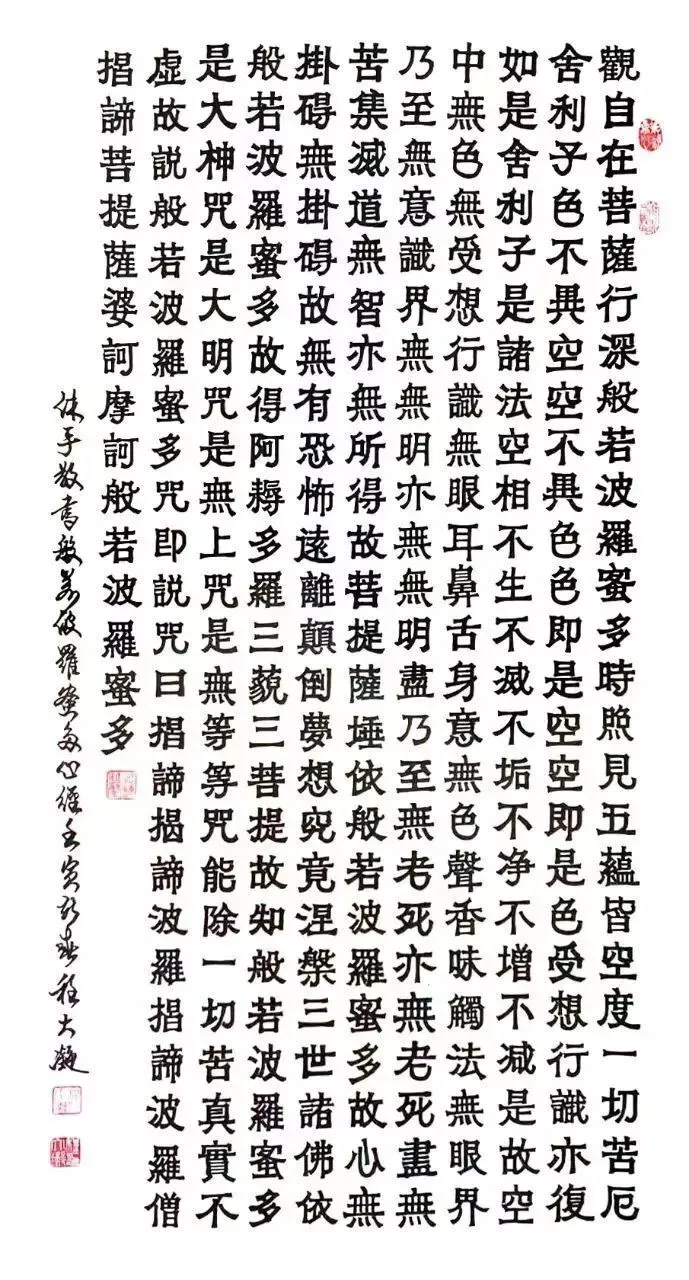 觀自在菩薩行深般若波羅蜜多時照見五蘊皆空度一切苦厄
舍利子色不異空空不異色色即是空空即是色受想行識亦復
如是舍利子是諸法空相不生不滅不垢不净不增不减是故空
中無色無受想行識無眼耳鼻舌身意無色聲香味觸法無眼界
乃至無意識界無無明亦無無明盡乃至無老死亦無老死盡無
苦集滅道無智亦無所得故菩提薩埵依般若波羅蜜多故心無
掛碍無掛碍故無有恐怖遠離顛倒夢想究竟涅槃三世諸佛依
般若波羅蜜多故得阿耨多羅三藐三菩提故知般若波羅蜜多
是大神咒是大明咒是無上咒是無等等咒能除一切苦真實不
虛故説般若波羅蜜多咒即説咒曰揭諦揭諦波羅揭諦波羅僧
揭諦菩提薩婆訶摩訶般若波羅蜜多
敬書般若波羅蜜多心經壬寅春程大